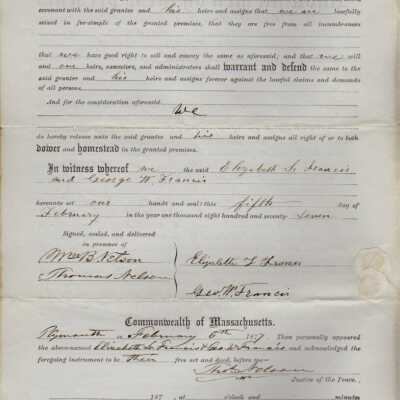 covenant with the said grantee and his heirs and assigns that we are lawfully
seized in fee-simple of the granted premises, that they are free from all incumbrances
that we have good right to sell and convey the same as aforesaid, and that we will
and our heirs, executors, and administrators shall warrant and defend the same to the
said grantee and his heirs and assigns forever against the lawful claims and demands
of all persons
And for the consideration aforesaid
We
do hereby release unto the said grantee and his heirs and assigns all right of or to both
dower and homestead in the granted premises.
In witness whereof we the said Elizabeth S. Francis
and George W. Francis
hereunto set our hands and seals this fifth day of
February in the year one thousand eight hundred and seventy seven
Signed, sealed, and delivered
in presence of
B Nelson
Thomas Nelson
Elizabeth S Francis
Geo. W. Francis
Commonwealth of Massachusetts.
Plymouth February 6th 1877 Then personally appeared
the above-named Elizabeth S. Francis & Geo. W. Francis and acknowledged the
foregoing instrument to be their free act and deed, before me
Nelson
Justice of the Peace.
187 at o'clock and minutes